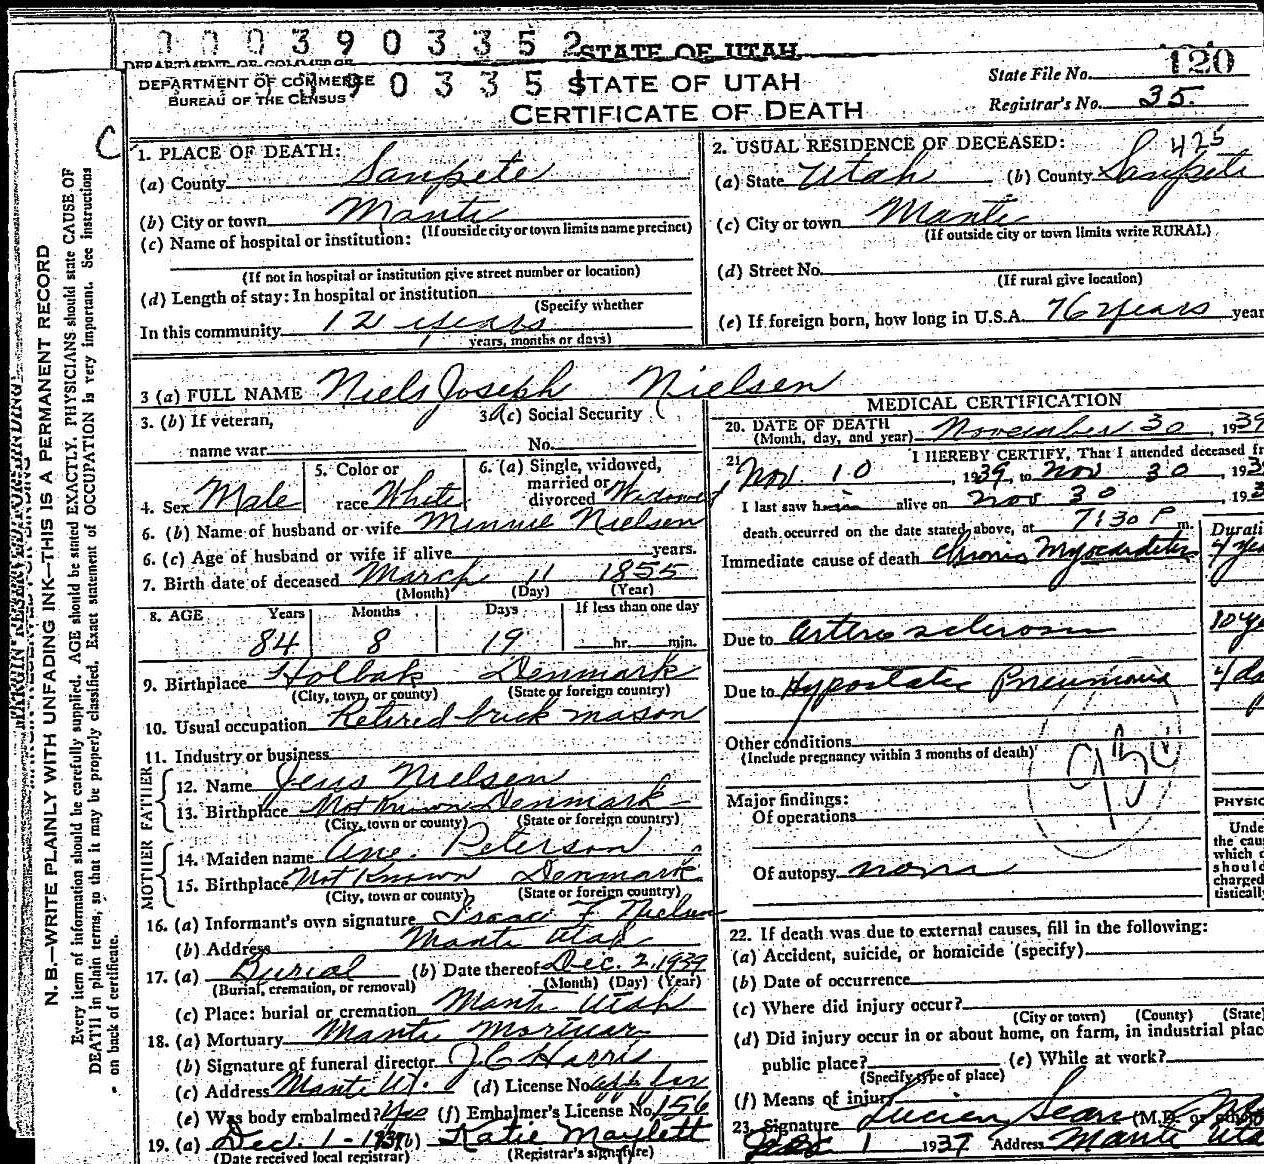 0003903352 STATE OF UTAH
DEPARTMENT OF COMMERCE
BUREAU OF THE CENSUS
STATE OF UTAH
CERTIFICATE OF DEATH
State File No. 120
Registrar's No. 35.
C
MARGIN RESERVED FOR BINDING
N. B.—WRITE PLAINLY WITH UNFADING INK—THIS IS A PERMANENT RECORD
Every item of information should be carefully supplied. AGE should be stated EXACTLY. PHYSICIANS should state CAUSE OF
DEATH in plain terms, so that it may be properly classified. Exact statement of OCCUPATION is very important. See instructions
on back of certificate.
1. PLACE OF DEATH:
(a) County Sanpete
(b) City or town Manti
(If outside city or town limits name precinct)
(c) Name of hospital or institution:
(If not in hospital or institution give street number or location)
(d) Length of stay: In hospital or institution
(Specify whether
In this community 12 years
years, months or days)
2. USUAL RESIDENCE OF DECEASED: 425
(a) State Utah (b) County Sanpete
(c) City or town Manti
(If outside city or town limits write RURAL)
(d) Street No.
(If rural give location)
(e) If foreign born, how long in U.S.A. 76 years year
3 (a) FULL NAME Niels Joseph Nielsen
3. (b) If veteran,
name war
3 (c) Social Security
No.
4. Sex Male
5. Color or
race White
6. (a) Single, widowed,
married or
divorced Widowed
6. (b) Name of husband or wife Minnie Nielsen
6. (c) Age of husband or wife if alive years.
7. Birth date of deceased March 11 1855
(Month) (Day) (Year)
8. AGE Years Months Days If less than one day
84 8 19 hr. min.
9. Birthplace Holbak Denmark
(City, town, or county) (State or foreign country)
10. Usual occupation Retired brick mason
11. Industry or business
FATHER
12. Name Jens Nielsen
13. Birthplace Not Known Denmark
(City, town or county) (State or foreign country)
MOTHER
14. Maiden name Ane. Peterson
15. Birthplace Not Known Denmark
(City, town or county) (State or foreign country)
16. (a) Informant's own signature Isaac F Nielsen
(b) Address Manti Utah
17. (a) Burial (b) Date thereof Dec. 2, 1939
(Burial, cremation, or removal) (Month) (Day) (Year)
(c) Place: burial or cremation Manti Utah
18. (a) Mortuary Manti Mortuary
(b) Signature of funeral director J C Harris
(c) Address Manti Ut. (d) License No. app for
(e) Was body embalmed? Yes (f) Embalmer's License No. 156
19. (a) Dec. 1 - 1939 (b) Katie Maylett
(Date received local registrar) (Registrar's signature)
MEDICAL CERTIFICATION
20. DATE OF DEATH
(Month, day, and year) November 30, 1939
21. I HEREBY CERTIFY, That I attended deceased fr
Nov. 10, 1939, to Nov 30, 193
I last saw him alive on Nov 30, 193
death occurred on the date stated above, at 7:30 P m.
Immediate cause of death Chronic Myocarditis
Durati
4 yea
Due to arterio sclerosis
10 ye
Due to Hypostatic Pneumonia
4 da
Other conditions
(Include pregnancy within 3 months of death)
Major findings:
Of operations
Of autopsy
PHYSIC
Unde
the cau
which d
should
charged
tistically
22. If death was due to external causes, fill in the following:
(a) Accident, suicide, or homicide (specify)
(b) Date of occurrence
(c) Where did injury occur?
(City or town) (County) (State)
(d) Did injury occur in or about home, on farm, in industrial place
public place? (e) While at work?
(Specify type of place)
(f) Means of injury
23. Signature Lucien Sears (M.D. or other)
1 1937 Address Manti Uta